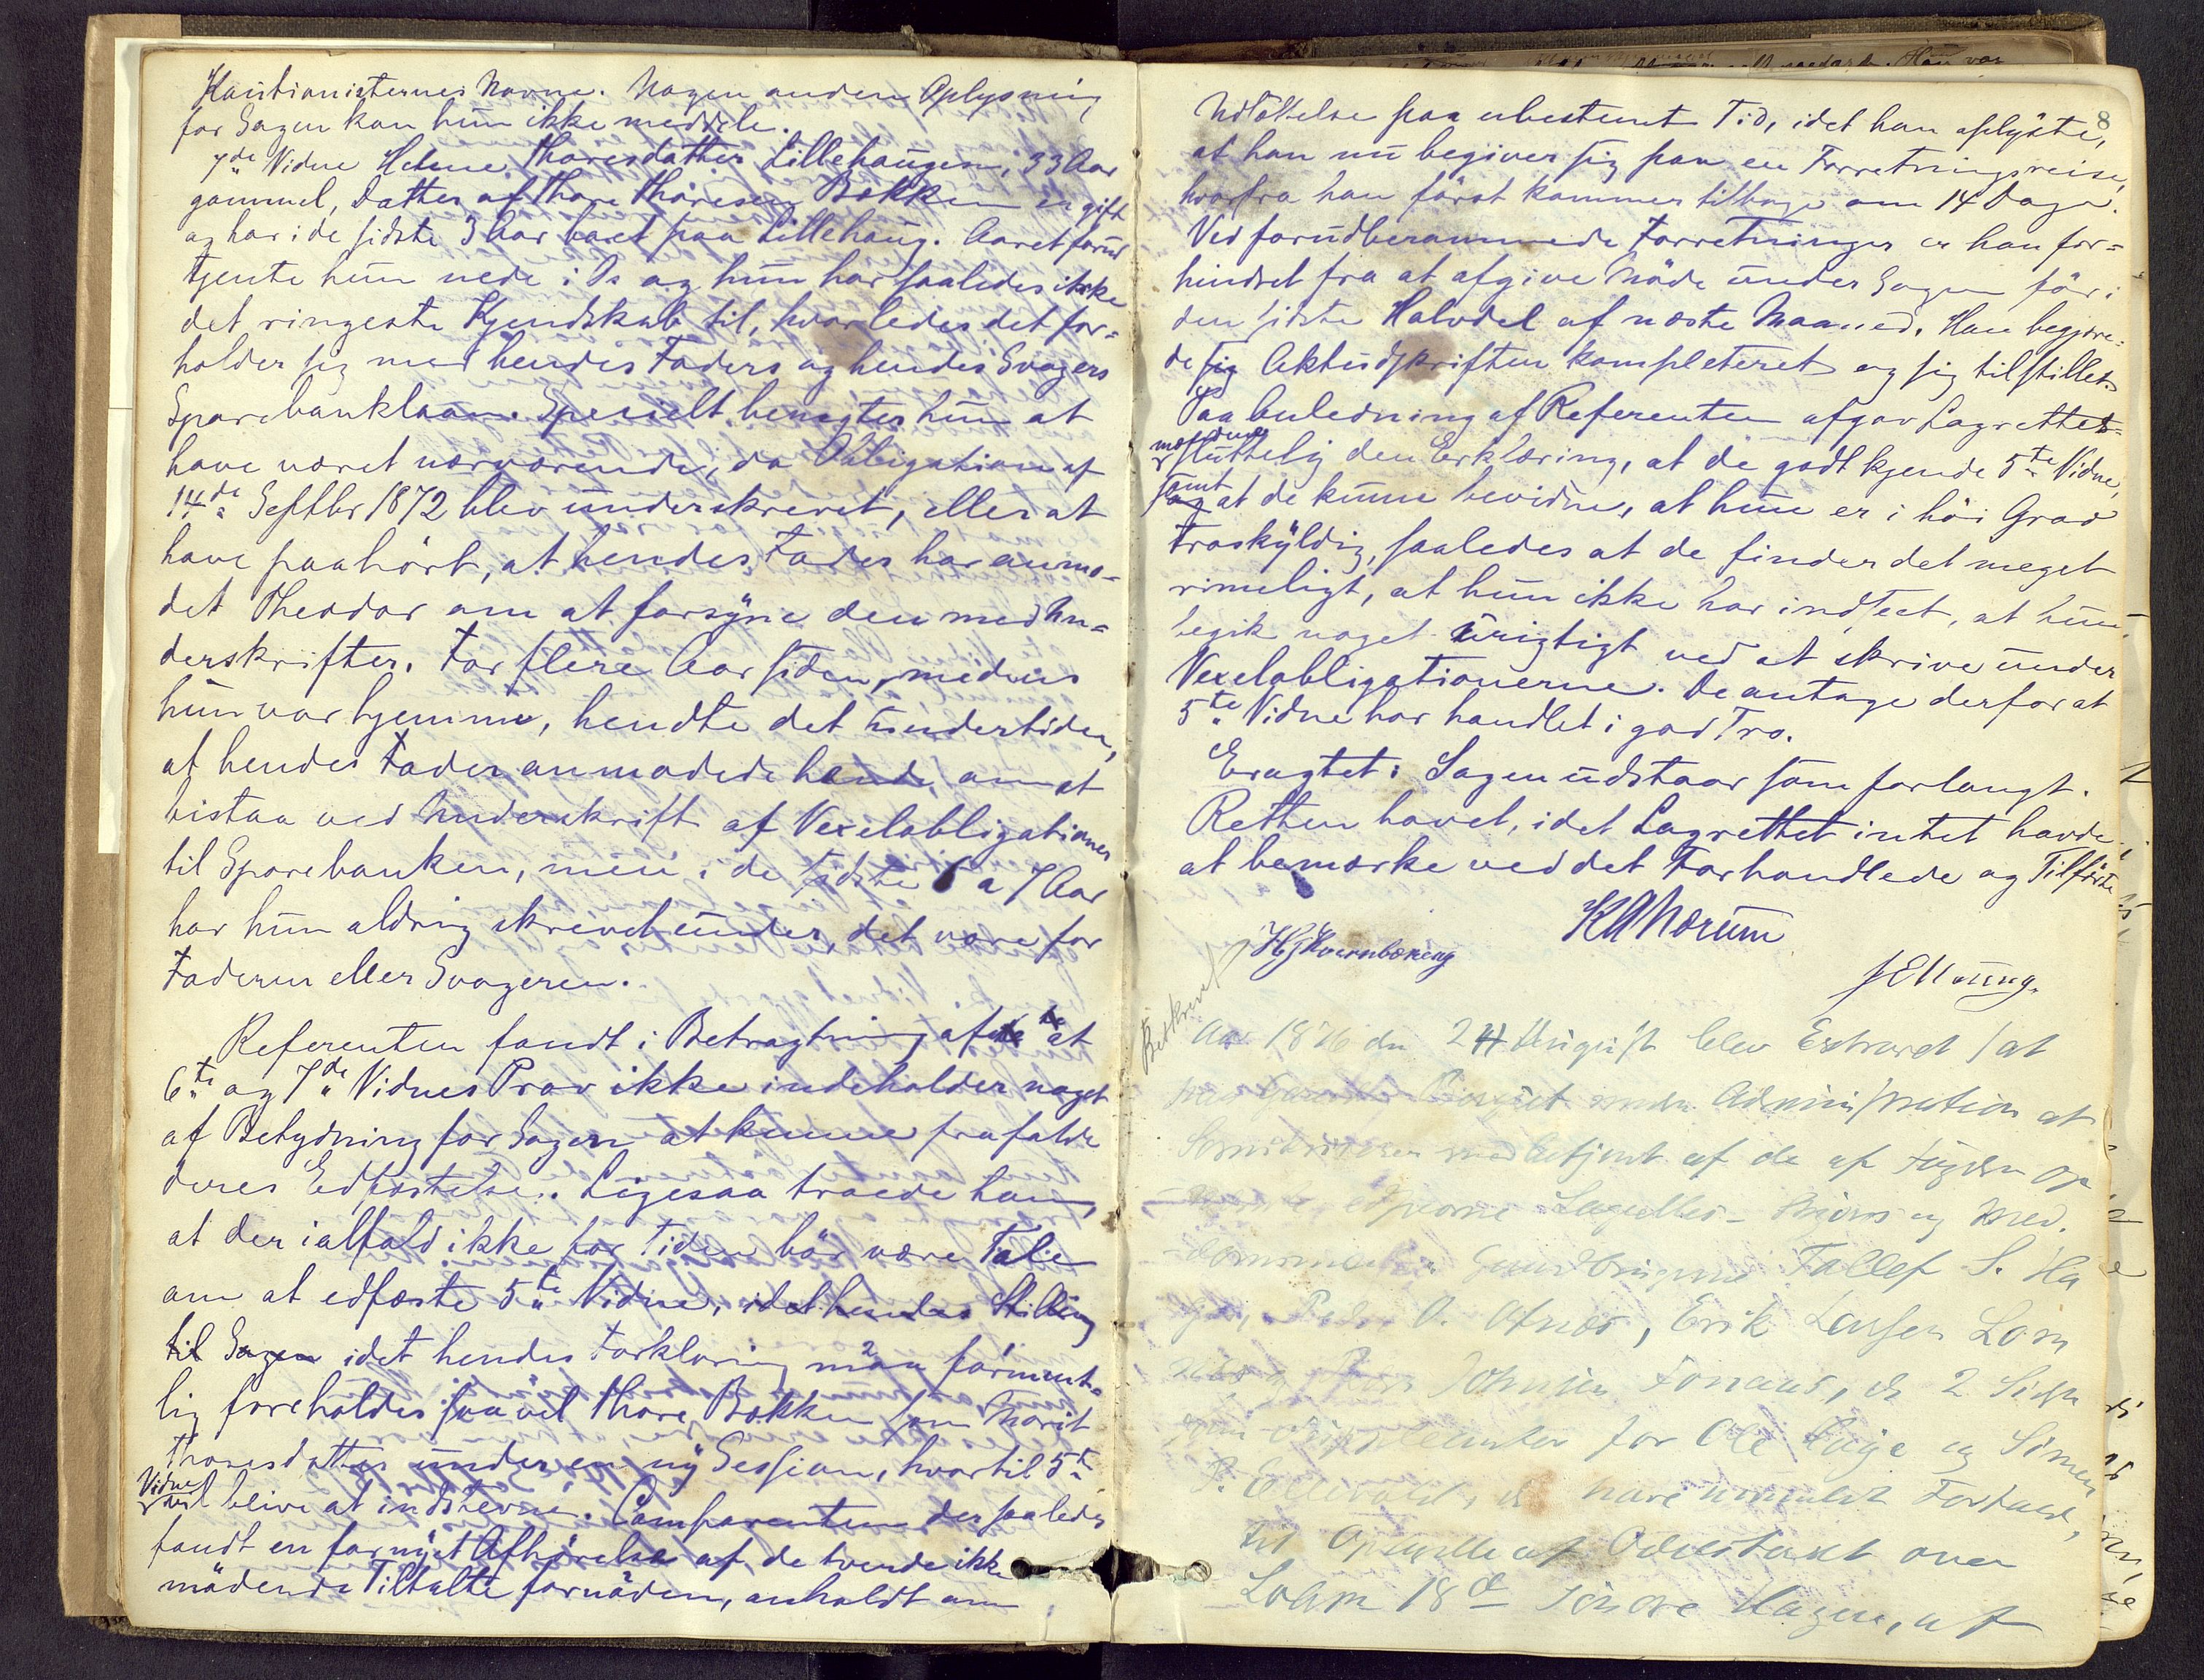 Kautionisternes Navne. Nogen anden Oplysning
for Sagen kan hun ikke meddele.
7de Vidne Helene Thoresdatter Lillehaugen, 33 Aar
gammel, Datter af Thore Thoresen Bakken er gift
og har i de sidste 3 Aar været paa Lillehaug. Aaret forud
tjente hun nede i Os og hun har saaledes ikke
det ringeste Kjendskab til, hvorledes det for-
holder sig med hendes Faders og hendes Svogers
Sparebanklaan. Specielt benegter hun at
have været nærværende, da Obligation af
14de Septbr 1872 blev underskrevet, eller at
have paahørt, at hendes Fader har anmo-
det Theodor om at forsyne den med Un-
derskrifter. For flere Aar siden, medens
hun var hjemme, hendte det undertiden,
at hendes Fader anmodede hende om at
bistaa ved Underskrift af Vexelobligationer
til Sparebanken, men i de sidste 6 a 7 Aar
har hun aldrig skrevet under, det være for
Faderen eller Svogeren.
Referenten fandt i Betragtning af at
6te og 7de Vidnes Prov ikke indeholder noget
af Betydning for Sagen at kunne frafalde
deres Edfæstelse. Ligesaa troede han,
at der ialfald ikke for Tiden bør være Tale
om at edfæste 5te Vidne, idet hendes Stilling
til Sagen idet hendes Forklaring maa forment-
lig foreholdes saavel Thore Bakken som Marit
Thoresdatter under en ny Session, hvortil 5te
Vidne vil blive at indstevne. Comparenten der saaledes
fandt en fornyet Afhørelse af de tvende ikke
mødende Tiltalte fornøden, anholdt om
8
Udsættelse paa ubestemt Tid, idet han oplyste,
at han nu begiver sig paa en Forretningsreise,
hvorfra han først kommer tilbage om 14 Dage.
Ved forudberammede Forretninger er han for-
hindret fra at afgive Møde under Sagen før i
den sidste Halvdel af næste Maaned. Han begjære-
de sig Aktudskriften kompleteret og sig tilstillet.
Paa Anledning af Referenten afgav Lagrettet-
mændene sluttelig den Erklæring, at de godt kjende 5te Vidne,
samt og at de kunne bevidne, at hun er i høi Grad
troskyldig, saaledes at de finder det meget
rimeligt, at hun ikke har indseet, at hun
begik noget urigtigt ved at skrive under
Vexelobligationerne. De antage derfor at
5te Vidne har handlet i god Tro.
Eragtet: Sagen udstaar som forlangt.
Retten hævet, idet Lagrettet intet havde
at bemærke ved det Forhandlede og Tilførte
KANorum
H J Kvernbæneng
J E Haung.
Beskrevet
Aar 1876 den 24 August blev Extraret sat
paa Gaarden under Administration af
Sorenskriveren med betjent af de af Fogden op
Lagrettes- Mænd og Med.
Tallef S. Ha
O. Afnæs, Erik Larsen Lom
Johnsen Fonaas, de 2 Sidste
for Ole Hage og Simen
P. Ellevold, have anmeldt Forfald,
til af Odelstaxt over
Løbnr 18d søndre Hagen, af